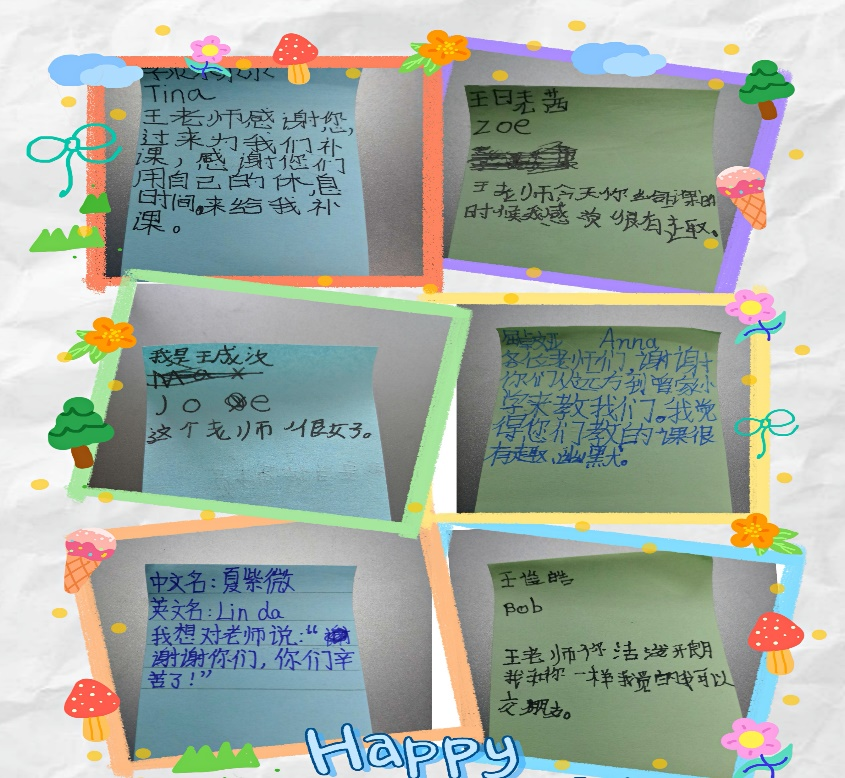 Tina
王老师感谢您,
过来为我们补
课,感谢您们
用自己的休息
时间。来给我补
课。
zoe
王老师今天你
时候我感觉很有趣。
我是王成汝
Joe
这个老师很好。
Anna
各位老师们,谢谢
你们
学来教我们。我觉
得您们教的课很
有趣、幽默。
中文名:夏紫微
英文名:Linda
我想对老师说:“
谢谢你们,你们辛
苦了!”
王俊皓
Bob
王老师你活泼开朗
我和你一样我
交朋友。
Happy